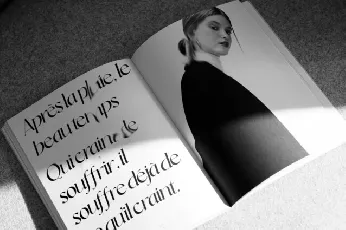 Après la pluie, le
beau temps
Qui craint de
souffrir, il
souffre déjà de
ce qu'il craint.